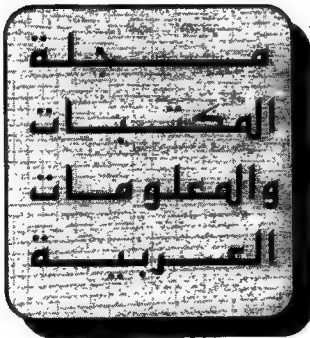 مجلة
المكتبات
والمعلومات
العربية